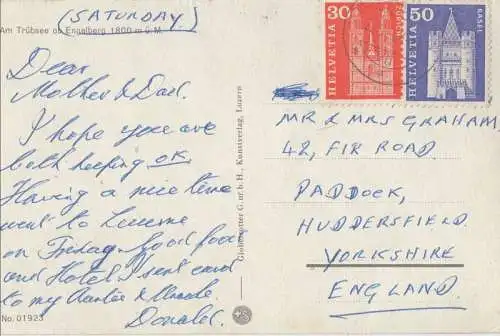 (SATURDAY)
Am Trübsee ob Engelberg 1800 m ü. M.
Dear
Mother & Dad.
I hope you are
both keeping OK.
Having a nice time
went to Lucerne
on Friday. Good food
and Hotel I sent card
to my Auntie & Uncle
Donald.
No. 01923
Globetrotter G.m.b.H., Kunstverlag, Luzern
30
HELVETIA
ZÜRICH
50
HELVETIA
BASEL
MR & MRS GRAHAM
42, FIR ROAD
PADDOCK,
HUDDERSFIELD.
YORKSHIRE
ENGLAND.